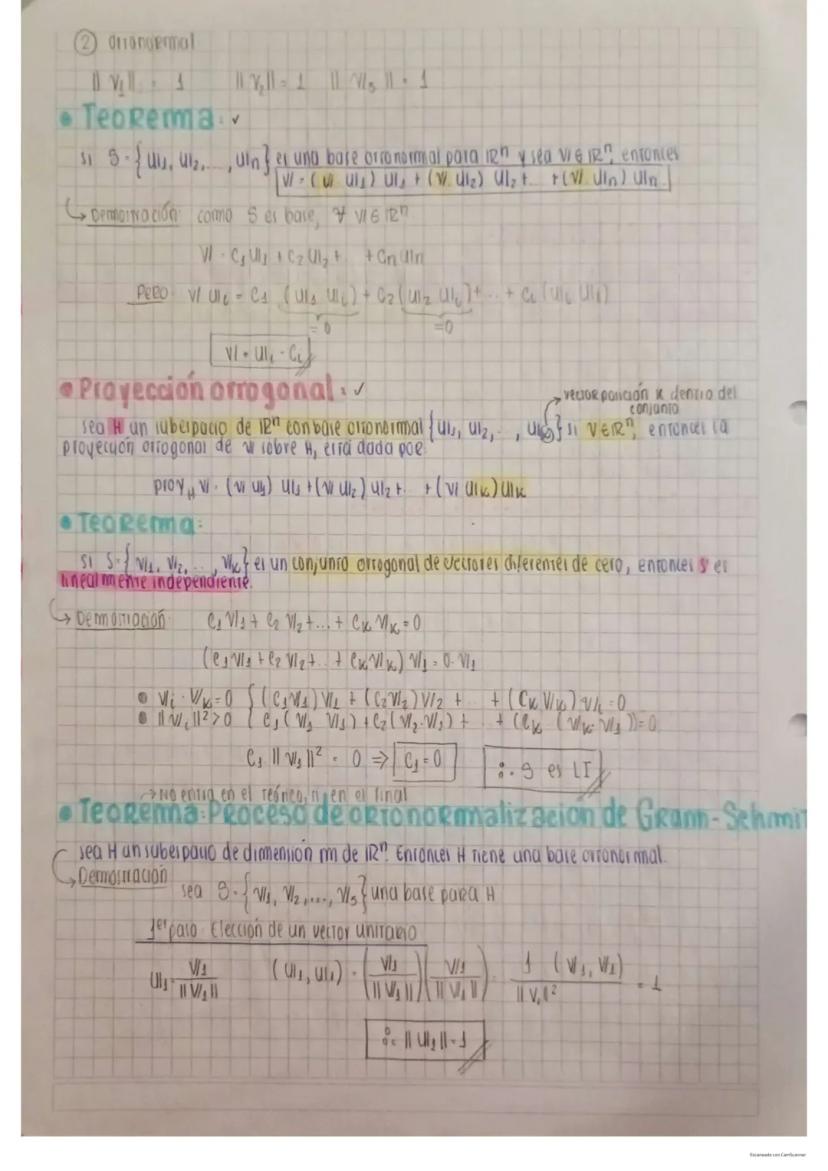 ② Ortonormal
||V₁|| = 1 ||V₂|| = 1 ||V₃|| = 1
• Teorema: ✓
Si S={u₁, u₂, ..., uₙ} es una base ortonormal para ℝⁿ y sea v∈ℝⁿ, entonces
v = (v·u₁) u₁ + (v·u₂) u₂ + ... + (v·uₙ) uₙ
↳ Demostración: como S es base, ∀ v∈ℝⁿ
v = C₁u₁ + C₂u₂ + ... + Cₙuₙ
Pero v·uᵢ = C₁ (u₁·uᵢ) + C₂ (u₂·uᵢ) + ... + Cᵢ (uᵢ·uᵢ)
=0 =0
v·uᵢ = Cᵢ
• Proyección ortogonal: ✓
vector posición k dentro del
conjunto
Sea H un subespacio de ℝⁿ con base ortonormal {u₁, u₂, ..., uₖ} si v∈ℝⁿ, entonces la
proyección ortogonal de v sobre H, está dada por:
proy_H v = (v·u₁) u₁ + (v·u₂) u₂ + ... + (v·uₖ) uₖ
• Teorema:
Si S={v₁, v₂, ..., vₖ} es un conjunto ortogonal de vectores diferentes de cero, entonces S es
linealmente independiente.
↳ Demostración: C₁v₁ + C₂v₂ + ... + Cₖvₖ = 0
(C₁v₁ + C₂v₂ + ... + Cₖvₖ) v₁ = 0·v₁
• vᵢ·vₖ=0 { (C₁v₁)v₁ + (C₂v₂)v₂ + ... + (Cₖvₖ)v₁ = 0
• ||vᵢ||²>0 { C₁(v₁·v₁) + C₂(v₂·v₁) + ... + (Cₖ (vₖ·v₁)) = 0
C₁ ||v₁||² = 0 ⇒ C₁=0 ∴ S es LI
→ No entra en el teórico, ni en el final
• Teorema: Proceso de ortonormalizacion de Gramm-Schmit
Sea H un subespacio de dimensión m de ℝⁿ. Entonces H tiene una base ortonormal.
↳ Demostración
Sea S={v₁, v₂, ..., v₃} una base para H
1er paso: Elección de un vector unitario
u₁ = v₁/||v₁|| (u₁, u₁) = (v₁/||v₁||)(v₁/||v₁||) = 1/||v₁||² (v₁, v₁) = 1
∴ ||u₁||=1
Escaneado con CamScanner